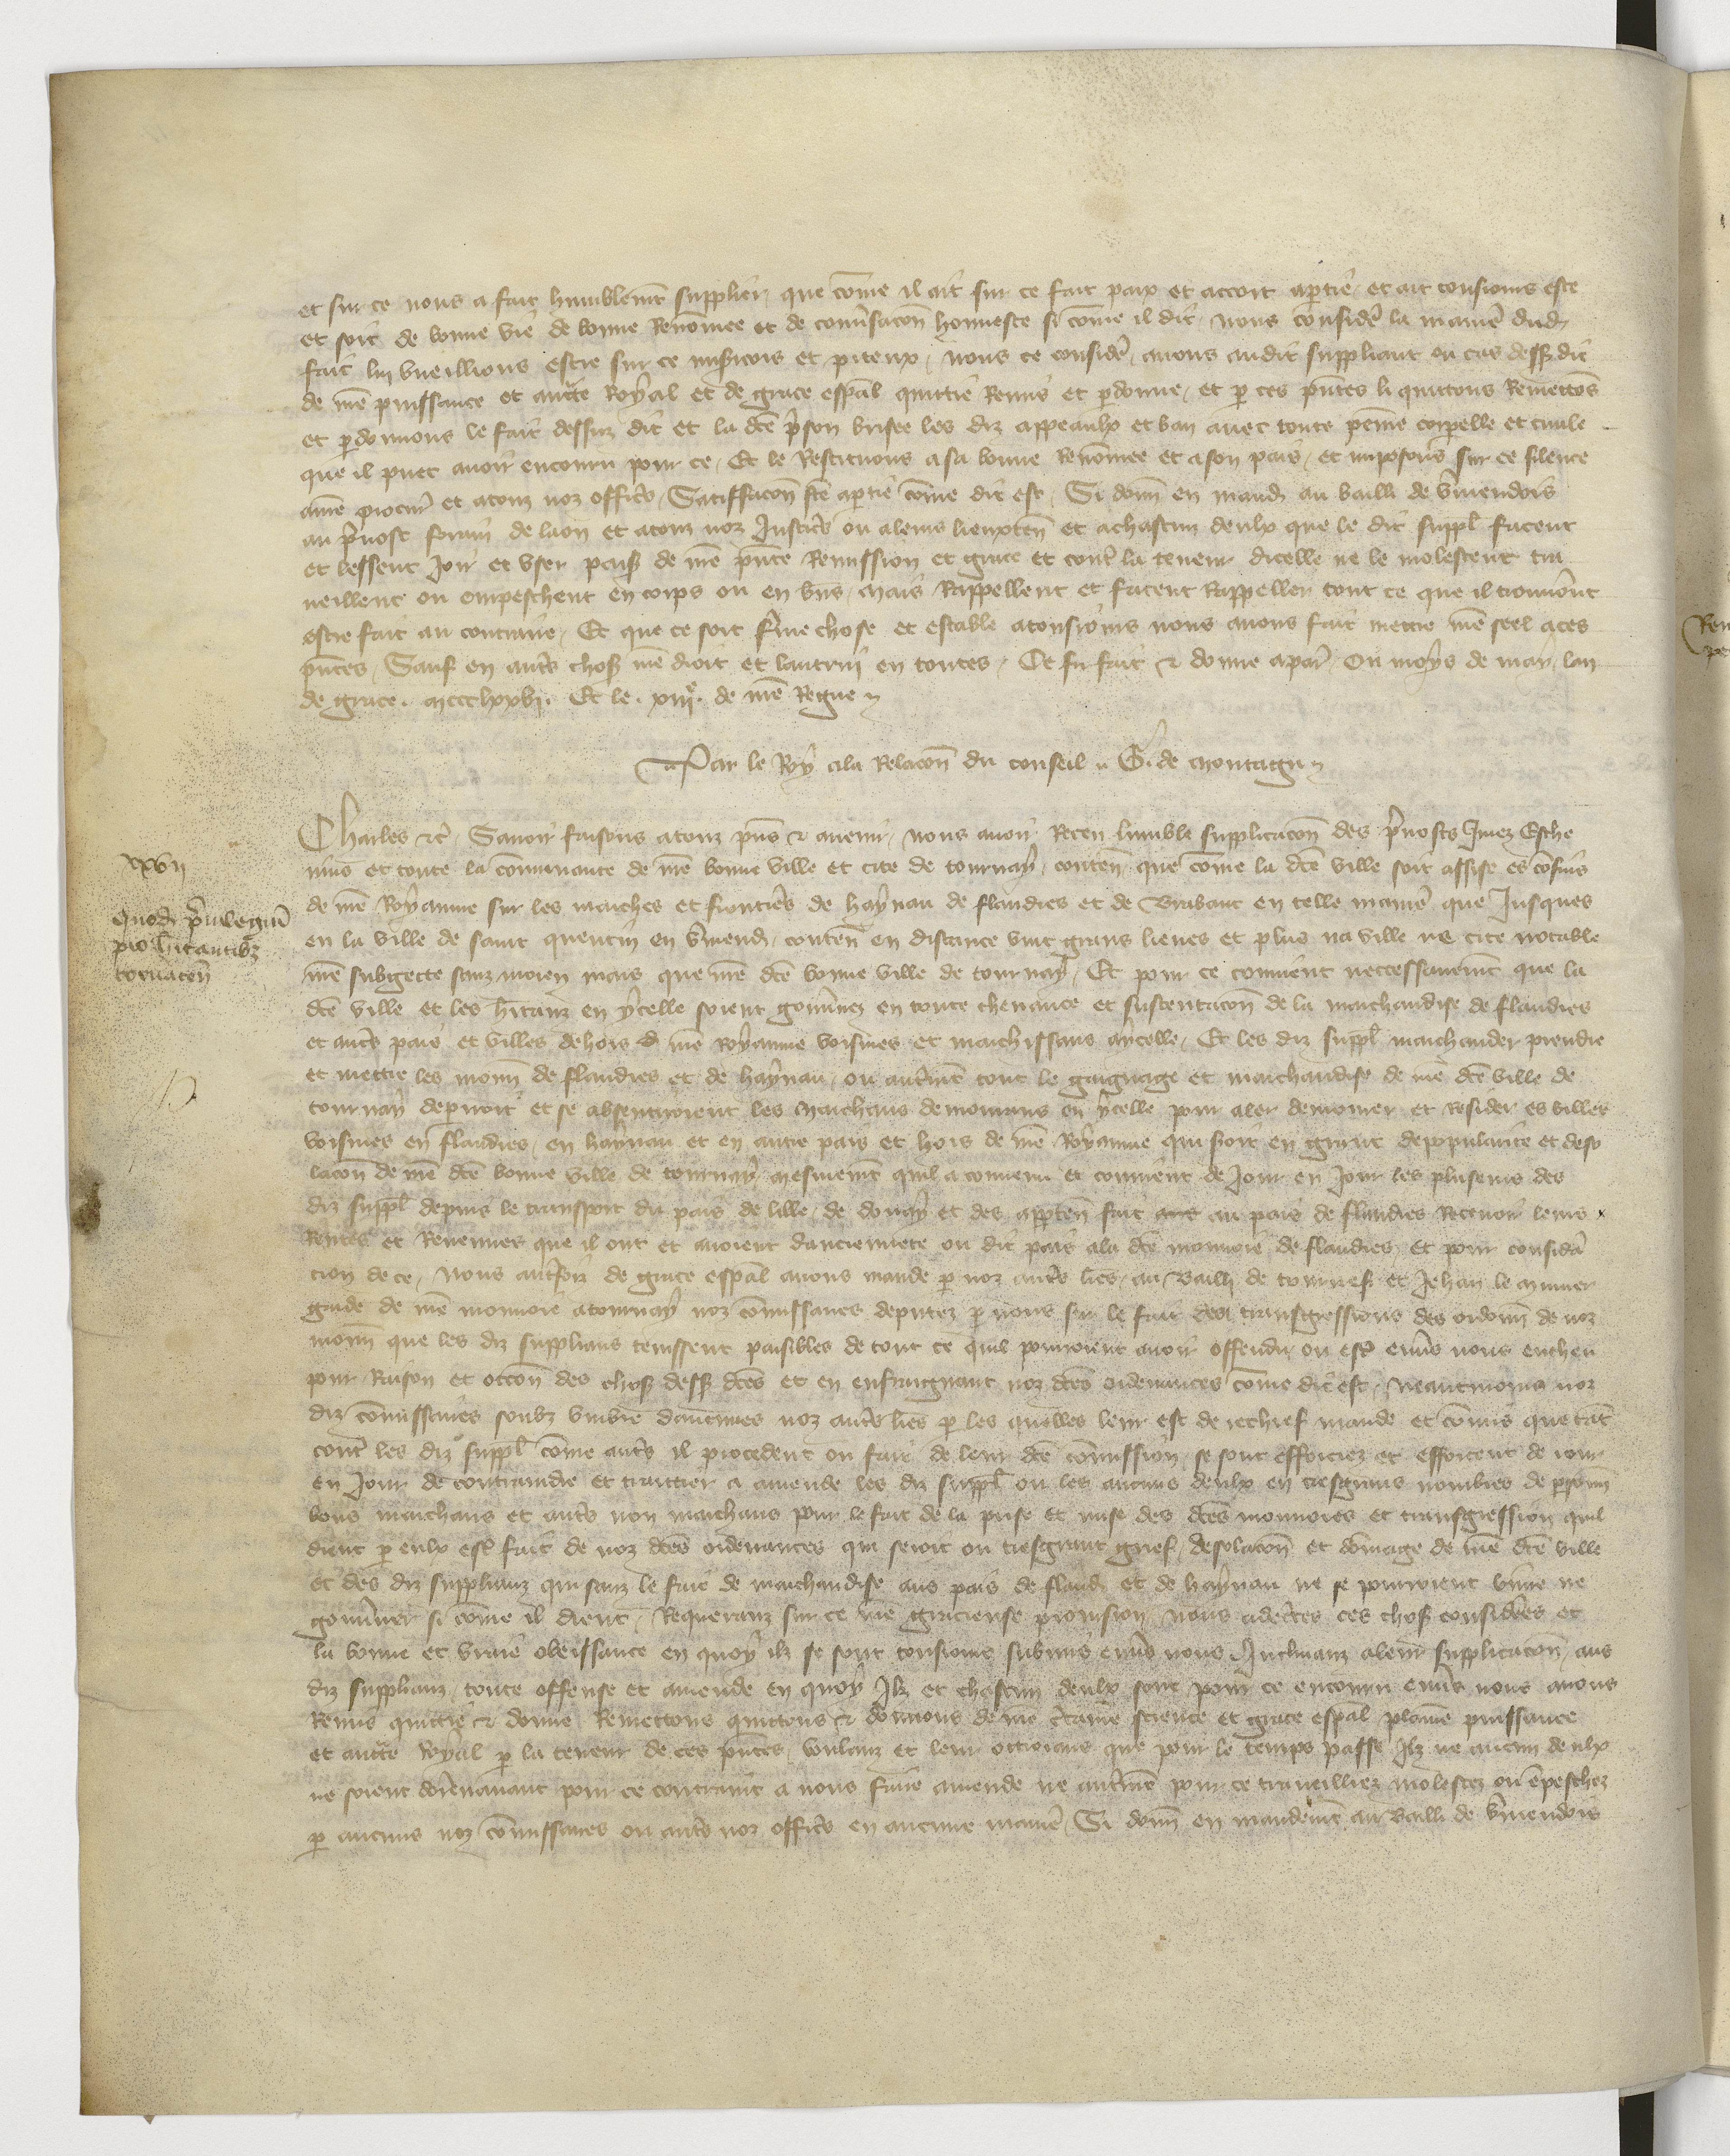 et sur ce nous a fait humblemt supplier que come il ait sur ce fait paix et accort a partie et ait tousiours este
et soit de bonne vie de bonne Renomee et de conusacon honneste si come il dit nous considé la manie dud
fait lui vueillions estre sur ce misicors et piteux, nous ce considé, auons audit suppliant ou cas dess dit
de nre puissance et aucte Royal et de grace espal quittie Remis et pdonne, et p ces pntes li quittons Remettos
et pdonnons le fait dessus dit et la dce pson brisee les diz appeaulx et ban auec toute peine corpelle et ciuile
que il puet auoir encouru pour ce, Et le Restituons a sa bonne Renomee et a son pais, et imposons sur ce silence
a nre procur et a touz noz offics, Satiffacon fce a ptie come dit est, Si donn en mand au bailli de Vmendois
au puost forain de laon et a touz noz Justics ou a leurs lieuxten et a chascun deulx que le dit suppl facent
et lessent Joir et vser paisib de nre pnte Remission et grace et conte la teneur dicelle ne le molestent tra
ueillent ou empeschent en corps ou en bns, mais Rappellent et facent Rappeller tout ce que il trouueront
estre fait au contraire, Et que ce soit fme chose et estable a tousiours nous auons fait mettre nre seel a ces
pntes, Sauf en auts chos nre droit et lautrui en toutes, Ce fu fait & donne a par, Ou moys de may, lan
de grace. mccclxxvii. Et le. xiiii.e de nre Regne
Par le Roy a la Relacon du conseil G. de montagu
Charles &c, Sauoir faisons a touz pns & auenir, nous auoir Receu lumble supplicacon des puosts Jurez Esche
uins et toute la comunaute de nre bonne ville et cite de tournay, conten que come la dce ville soit assise es confins
de nre Royaume sur les marches et frontieres de haynau de flandres et de Brabant en telle manie que Jusques
en la ville de saint quentin en Vmend, conten en distance vint grans lieues et plus na ville ne cite notable
nre subgecte sanz moien mais que nre dce bonne ville de tournay, Et pour ce conuient neccessairemt que la
dce ville et les hitanz en ycelle soient gounez en toute cheuance et sustentacon de la marchandise de flandres
et auts pais et villes dehors de nre Royaume voisines et marchissans a ycelle, Et les diz suppl marchander prendre
et mettre les monn de flandres et de haynau, ou autmt tout le gaignage et marchandise de nre dce ville de
tournay depiroit et se absenteroient les marchans demourans en ycelle pour aler demourer et Resider es villes
voisines en flandres, en haynau et en autre pais et hors de nre Royaume qui seroit en grant depopulance et deso
lacon de nre dce bonne ville de tournay, mesmemt quil a conuenu et conuient de Jour en Jour les pluseurs des
diz suppl depuis le transport du pais de lille, de douay et des apparten fait au pais de flandres Receuoir leurs
Rentes et Reuenues que il ont et auoient danciennete ou dit pais a la dce monnoie de flandres, et pour considera
cion de ce, nous autfoiz de grace espal auons mande p noz auts lres, au Bailli de tournes et Jehan le
garde de nre monnoie a tournay noz comissaires deputez p nous sur le fait des transgressions des ordonn de noz
monn que les diz supplians tenissent paisibles de tout ce quil pourroient auoir offendu ou est enuers nous encheu
pour Raison et occon des chos dess dces et en enfraignant noz dces ordenances come dit est, neantmoins noz
diz comissaires soubz vmbre daucunes noz auts lres p les quelles leur est de rechief mande et comis que tat
conte les diz suppl come auts il procedent ou faire de leur dce comission, se sont efforciez et efforcent de iour
en Jour de contraindre et traittier a amende les diz suppl ou les aucuns deulx en tresgrans nombres de psonn
bons marchans et auts non marchans pour le fait de la prise et mise des dces monnoies et transgression quil
dient p eulx est fait de noz dces ordenances qui seroit ou tresgrant grief, desolacon et domage de nre dce ville
et des diz supplianz qui sanz le faire de marchandise aus pais de fland et de haynau ne se pourroient viure ne
gouuner si come il dient, Requeranz sur ce nre gracieuse prouision, nous adectes ces chos considees et
la bonne et vraie obeissance en quoy ilz se sont tousiours submis enus nous Inclinanz a leur supplicacon, aus
diz supplianz, toute offense et amende en quoy Ilz et chascun deulx sont pour ce encouru enus nous auons
Remis quittie & donne, Remettons quittons & donnons de nre ctaine science et grace espal plaine puissance
et aucte Royal p la teneur de ces pntes, voulanz et leur ottroians que pour le temps passe Ilz ne aucun deulx
ne soient dorenauant pour ce contrainz a nous faire amende ne autmt pour ce traueilliez molestez ou epeschez
p aucuns noz comissaires ou auts noz offics en aucune manie, Si donn en mandemt au Bailli de Vmendois
xxvii
Quodd priuilegiu
pro hitantibz
tornacen